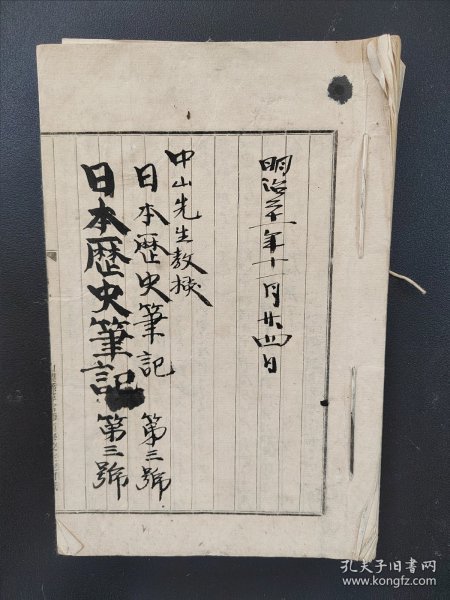 明治三十一年十一月廿四日
中山先生教授
日本歴史筆記 第三號
日本歴史筆記 第三號
孔夫子旧书网
www.kongfz.com